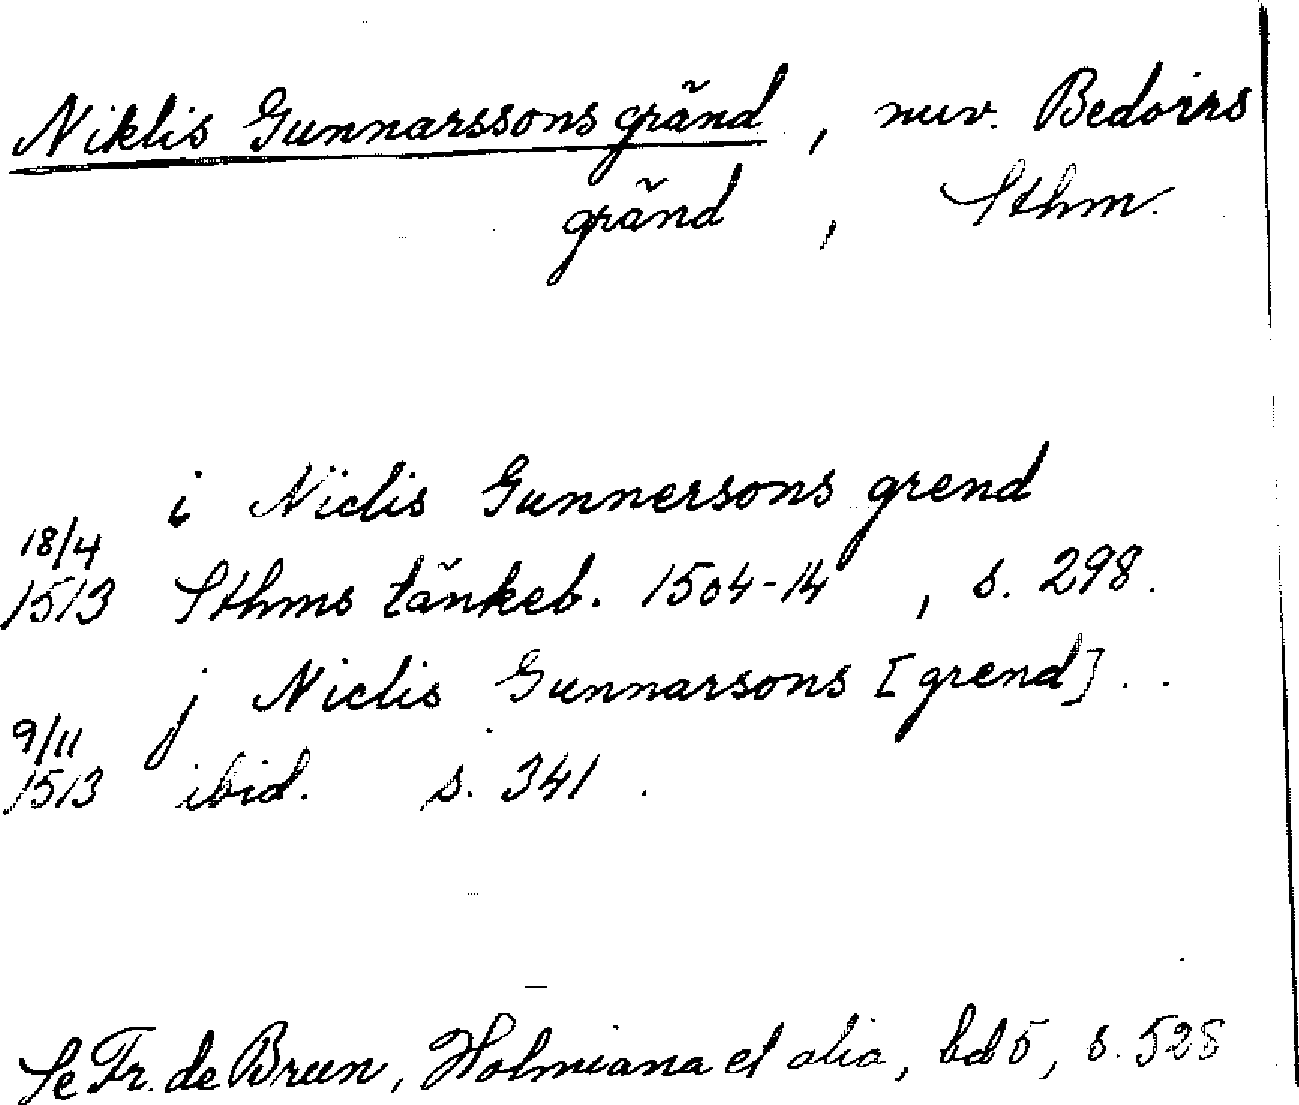 Niklis Gunnarssons gränd, nuv. Bedoirs
gränd, Sthm.
i Niclis Gunnersons grend
18/4
1513 Sthms tänkeb. 1504-14, s. 298.
j Niclis Gunnarsons [grend] ..
9/11
1513 ibid. s. 341.
Se Fr. de Brun, Holmiana et alia, bd 5, s. 528